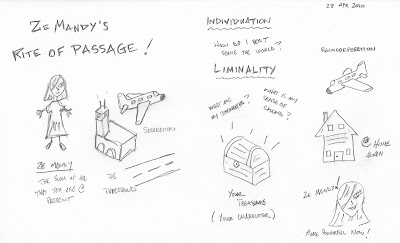 28 APR 2010
ZE MANDY'S
RITE OF PASSAGE!
ZE MANDY
THE SUM OF ALL
THAT YOU ARE @
PRESENT
SEPARATION
THE
THRESHOLD
INDIVIDUATION
HOW DO I BEST
SERVE THE WORLD?
LIMINALITY
WHAT ARE
MY STRENGTHS?
WHAT IS MY
SENSE OF
CALLING?
YOUR
TREASURE
(YOUR CHARACTER)
REINCORPORATION
@ HOME
AGAIN
ZE MANDY!
MORE POWERFUL NOW!